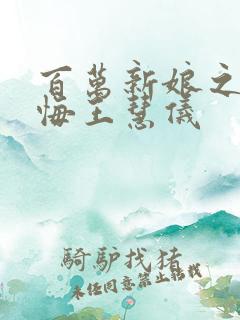 百萬新娘之
悔王慧儀
騎驢找猪
未经同意禁止转载